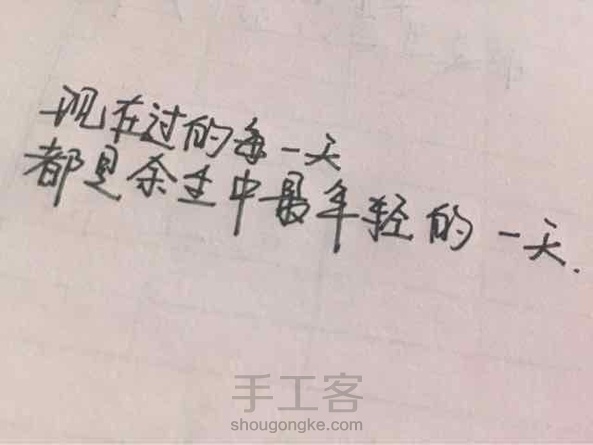 现在过的每一天
都是余生中最年轻的一天.
手工客
shougongke.com